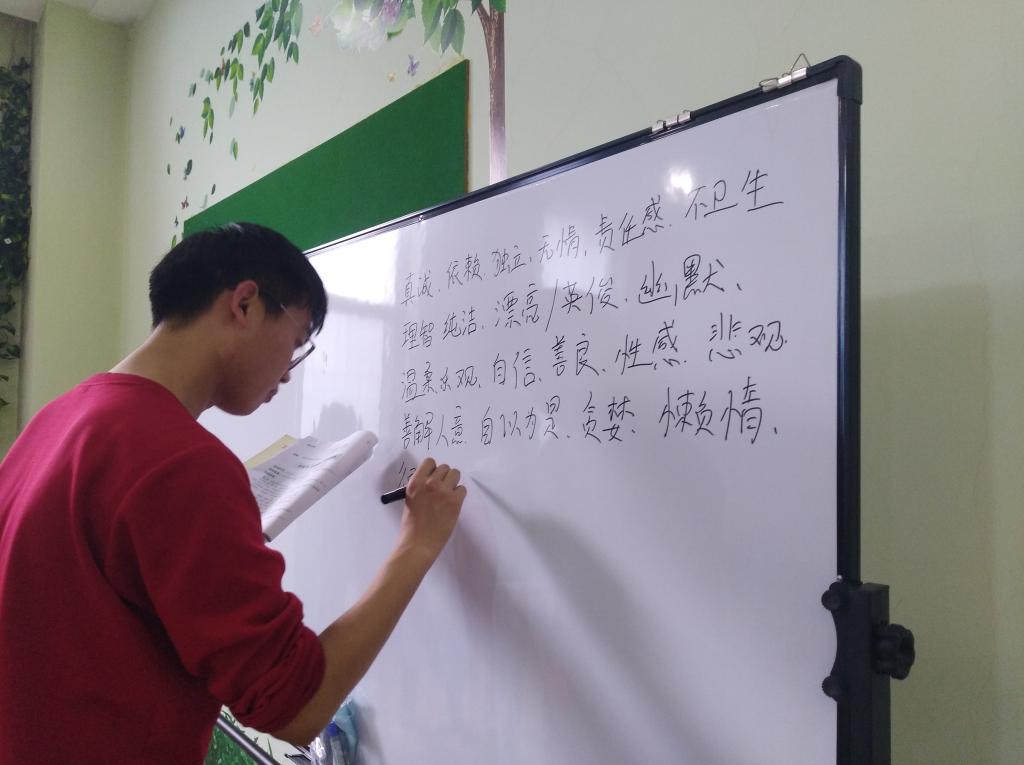 真诚、依赖、独立、无情、责任感、不卫生
理智 纯洁、漂亮/英俊、幽默、
温柔 乐观、自信、善良、性感、悲观、
善解人意、自以为是、贪婪、懒惰、